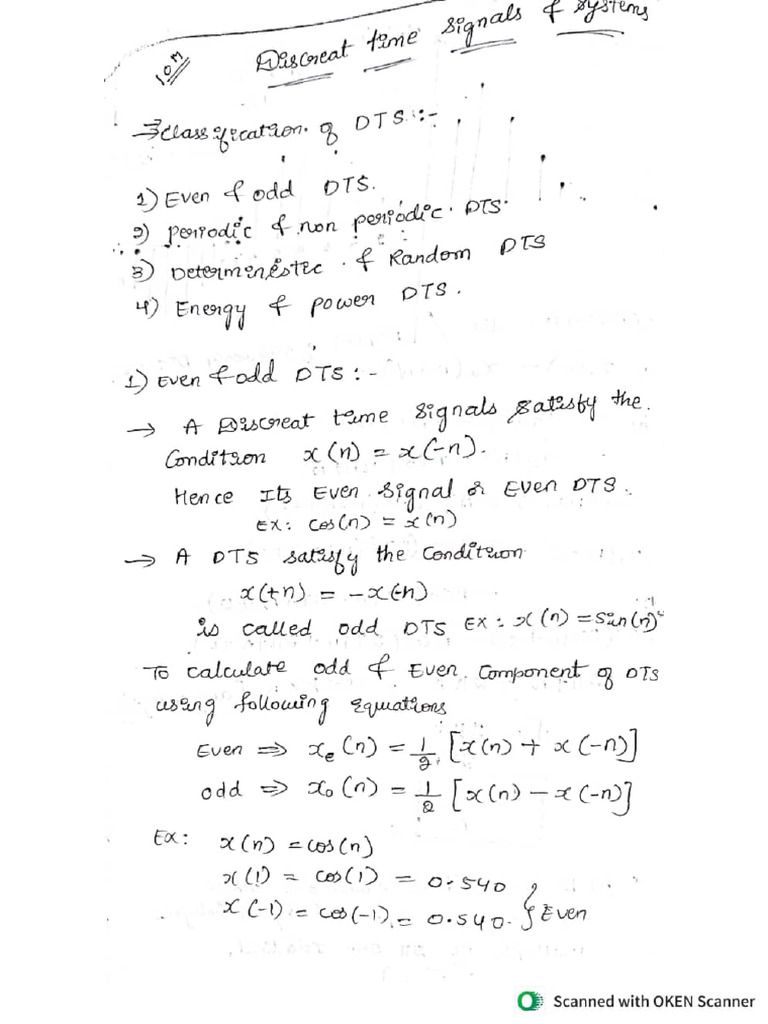 10M
Discreat time signals & systems
→ Classification of DTS :-
1) Even & odd DTS.
2) Periodic & non periodic DTS.
3) Determinestec & Random DTS
4) Energy & power DTS.
1) Even & odd DTS :-
→ A Discreat time signals satisfy the
Condition x(n) = x(-n).
Hence Its Even signal or Even DTS.
Ex: cos(n) = x(n)
→ A DTS satisfy the Condition
x(+n) = -x(-n)
is called odd DTS Ex: x(n) = sin(n)
To calculate odd & Even Component of DTS
using following Equations
Even ⇒ xe(n) = 1/2 [x(n) + x(-n)]
odd ⇒ xo(n) = 1/2 [x(n) - x(-n)]
Ex: x(n) = cos(n)
x(1) = cos(1) = 0.540
x(-1) = cos(-1) = 0.540. } Even
Scanned with OKEN Scanner